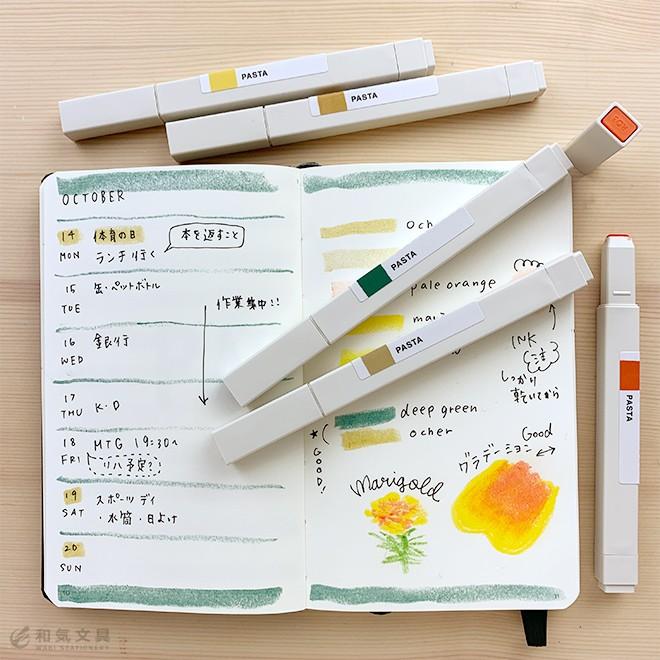 PASTA
PASTA
OCTOBER
14 体育の日
本を返すこと
MON ランチ行く
15 缶・ペットボトル
TUE
作業集中!!
16 銀行
WED
17
THU K.D
18 MTG 19:30~
FRI リハ予定?
19 スポーツデイ
SAT ・水筒・日よけ
20
SUN
PASTA
pale orange
PASTA
INK
注
しっかり
乾いてから
deep green
ocher
GOOD!
Good
グラデーション
Marigold
PASTA
和気文具
WAKI STATIONERY